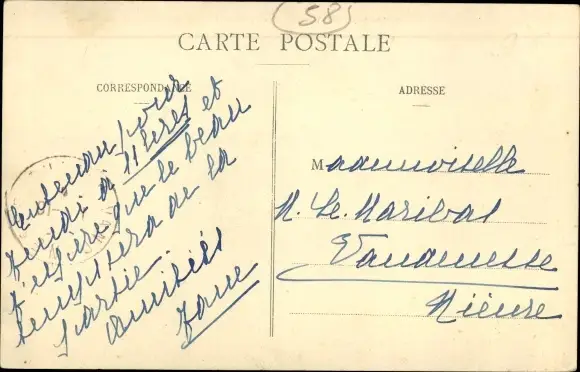 58
CARTE POSTALE
CORRESPONDANCE
ADRESSE
Entendu pour
jeudi à 11 heures et
j'espère que le beau
temps sera de la
partie.
Amitiés
Mademoiselle
M. Le
Vandenesse
Nièvre